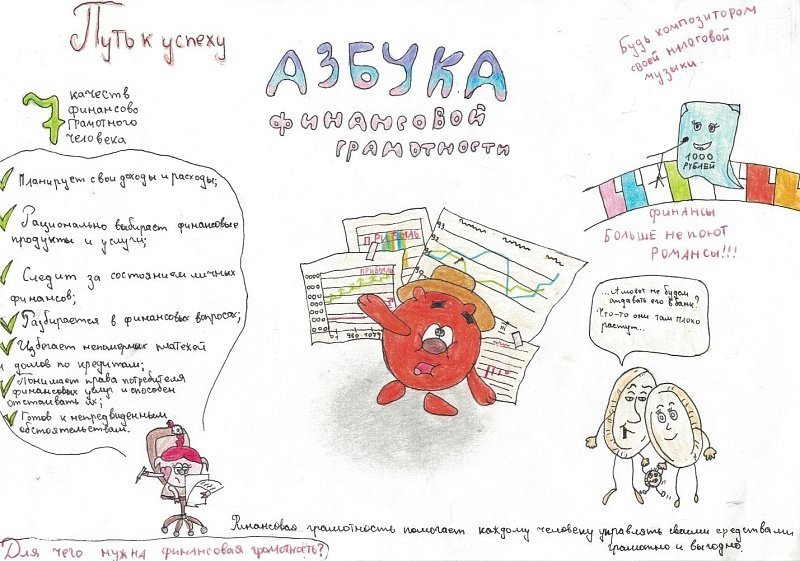 Путь к успеху
7 качеств
финансово
грамотного
человека
Планирует свои доходы и расходы;
Рационально выбирает финансовые
продукты и услуги;
Следит за состоянием личных
финансов;
Разбирается в финансовых вопросах;
Избегает непомерных платежей
и домов по кредитам;
Понимает права потребителя
финансовых услуг и способен
отстаивать их;
Готов к непредвиденным
обстоятельствам.
АЗБУКА
финансовой
грамотности
ПРИБЫЛЬ
ПРИБЫЛЬ
Будь композитором
своей налоговой
музыки.
1000
РУБЛЕЙ
ФИНАНСЫ
БОЛЬШЕ НЕ ПОЮТ
РОМАНСЫ!!!
...А может не будем
отдавать его в банк?
Что-то они там плохо
растут...
Финансовая грамотность помогает каждому человеку управлять своими средствами
грамотно и выгодно.
Для чего нужна финансовая грамотность?